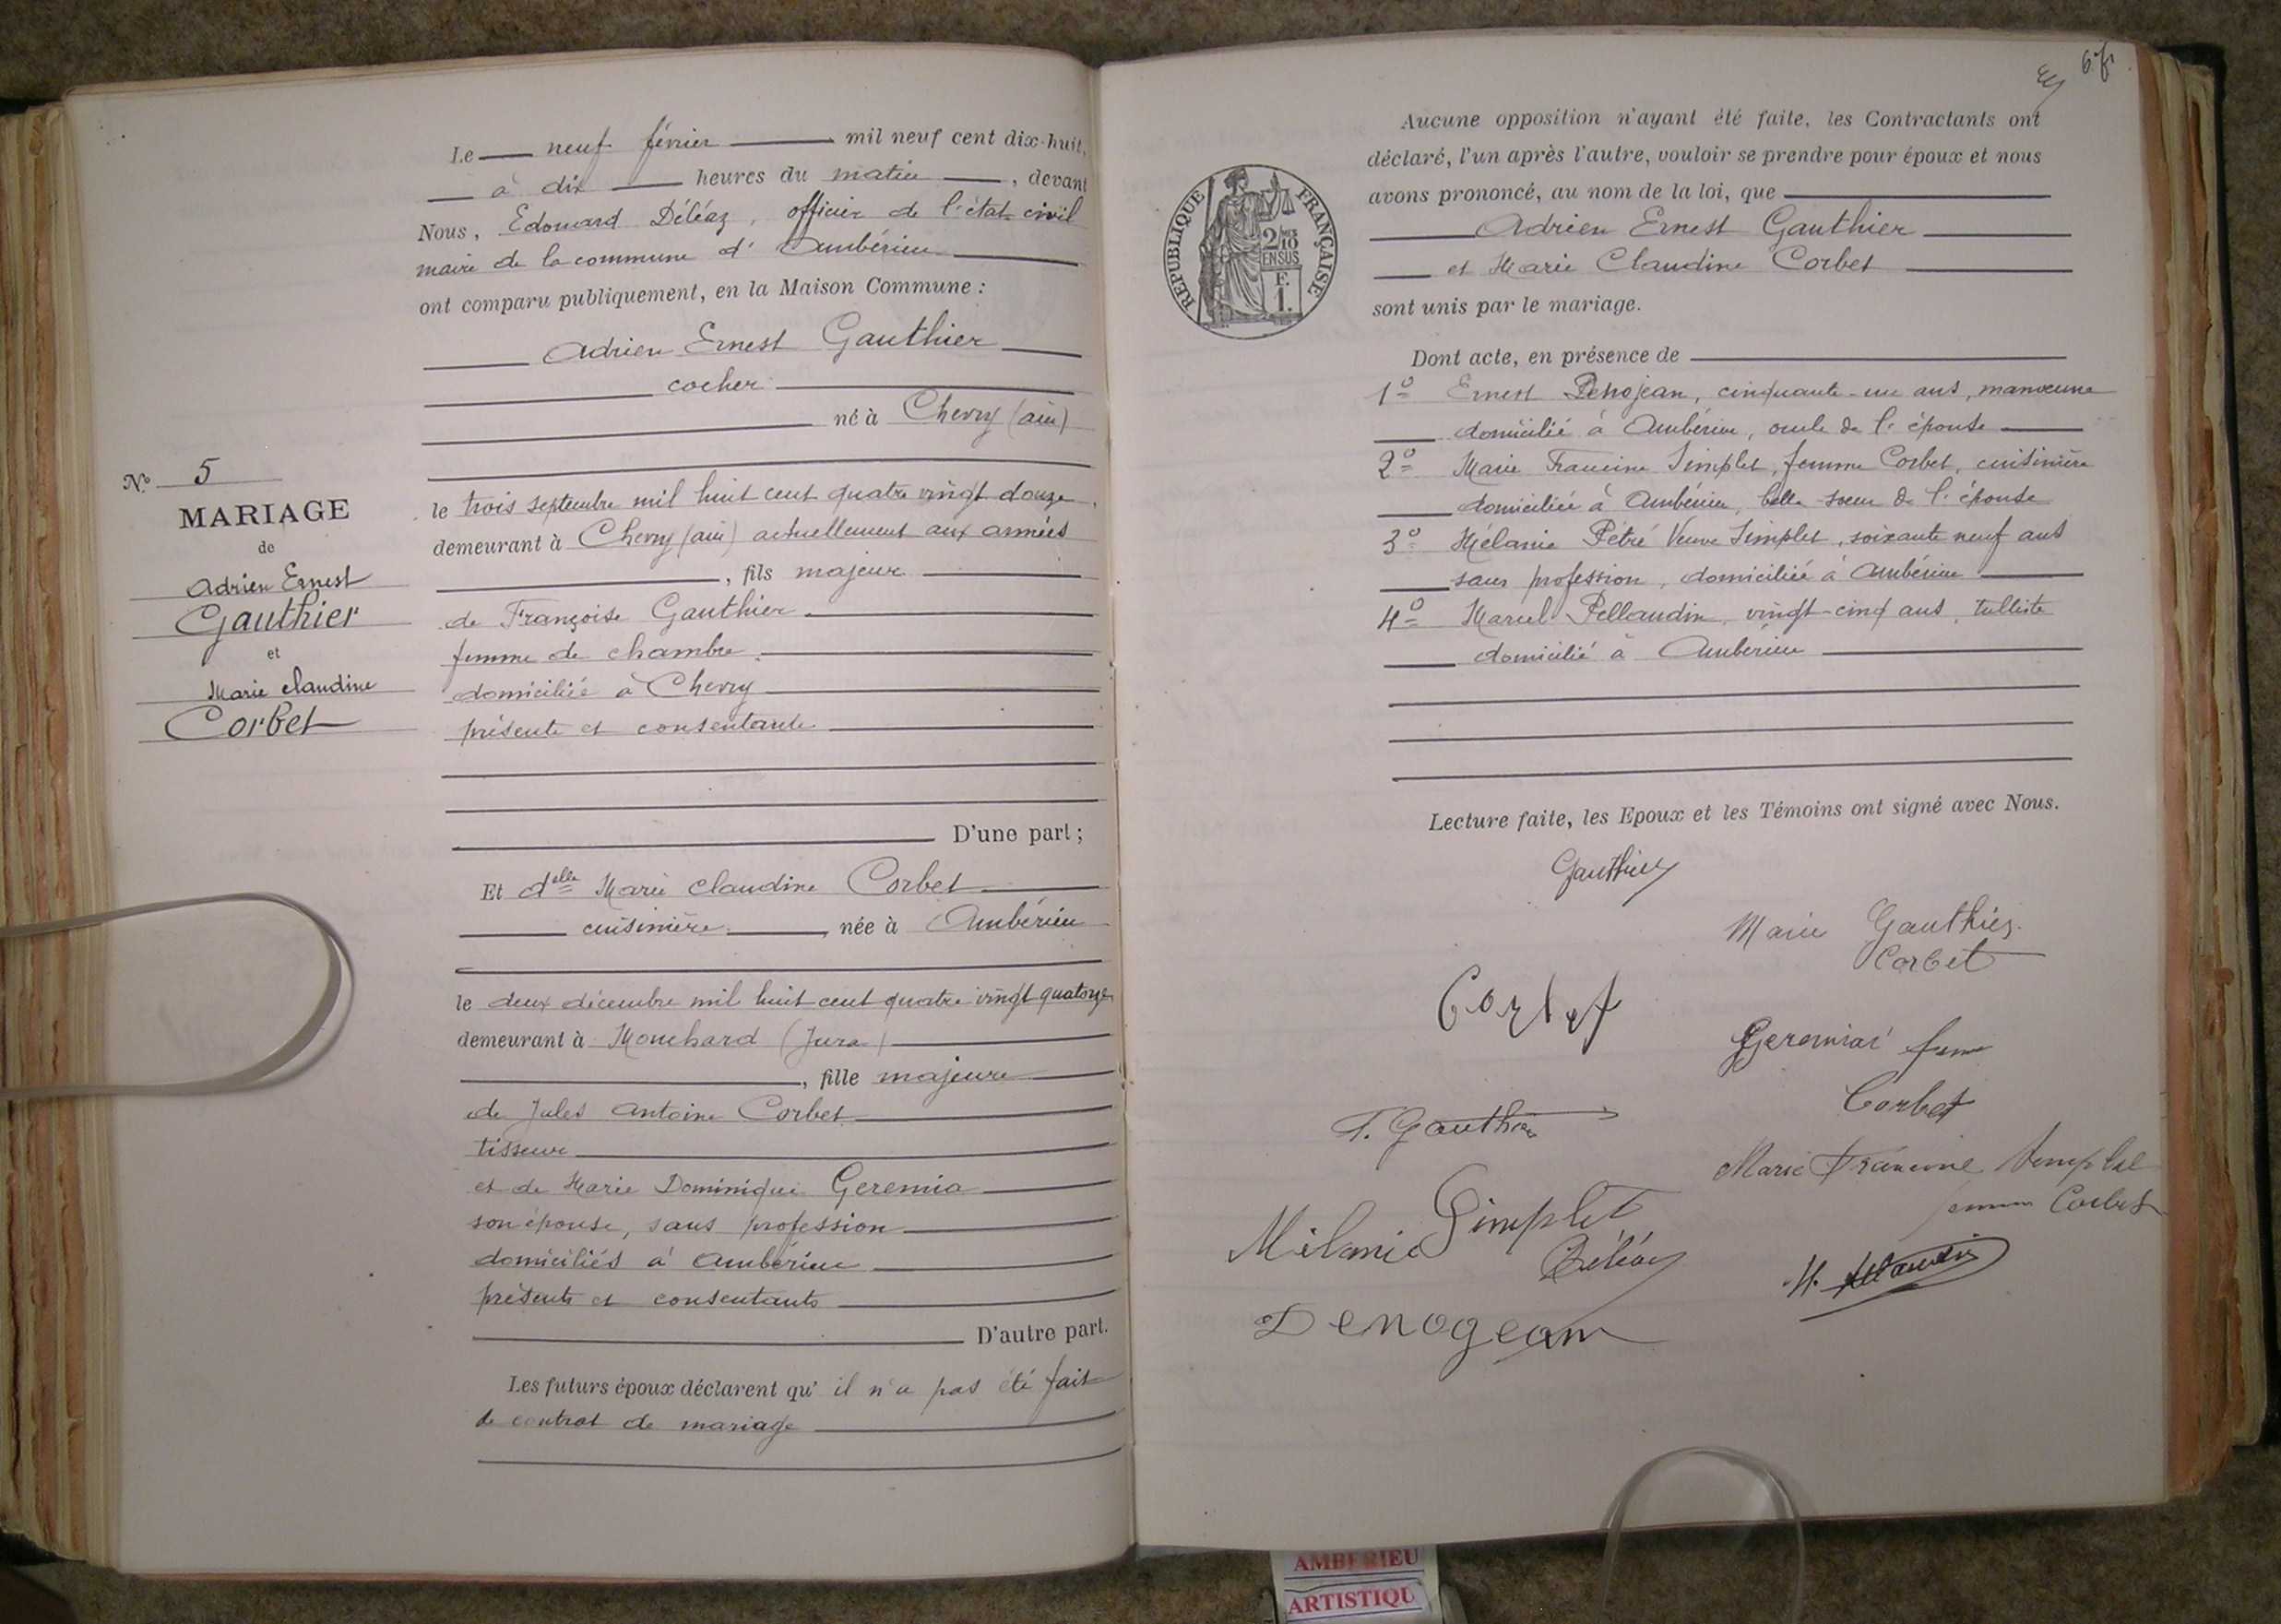 Le neuf février mil neuf cent dix-huit,
à dix heures du matin, devant
Nous, Edouard Déléaz, officier de l'état civil
maire de la commune d'Ambérieu
ont comparu publiquement, en la Maison Commune :
Adrien Ernest Gauthier
cocher
né à Chevry (ain)
le trois septembre mil huit cent quatre vingt douze,
demeurant à Chevry (ain) actuellement aux armées
, fils majeur
de Françoise Gauthier
femme de chambre
domiciliée à Chevry
présente et consentante
D'une part ;
Et delle Marie Claudine Corbet
cuisinière, née à Ambérieu
le deux décembre mil huit cent quatre vingt quatorze
demeurant à Mouchard (Jura)
, fille majeure
de Jules Antoine Corbet
tisseur
et de Marie Dominique Geremia
son épouse, sans profession
domiciliés à Ambérieu
présents et consentants
D'autre part.
Les futurs époux déclarent qu'il n'a pas été fait
de contrat de mariage
N° 5
MARIAGE
de
Adrien Ernest
Gauthier
et
Marie Claudine
Corbet
6 f
Aucune opposition n'ayant été faite, les Contractants ont
déclaré, l'un après l'autre, vouloir se prendre pour époux et nous
avons prononcé, au nom de la loi, que
Adrien Ernest Gauthier
et Marie Claudine Corbet
sont unis par le mariage.
RÉPUBLIQUE FRANÇAISE
2/10
EN SUS
F.
1.
Dont acte, en présence de
1° Ernest Denojean, cinquante-un ans, manœuvre
domicilié à Ambérieu, oncle de l'épouse
2° Marie Francine Simplet, femme Corbet, cuisinière
domiciliée à Ambérieu, belle sœur de l'épouse
3° Mélanie Pétré Veuve Simplet, soixante neuf ans
sans profession, domiciliée à Ambérieu
4° Marcel Pellaudin, vingt-cinq ans, tulliste
domicilié à Ambérieu
Lecture faite, les Epoux et les Témoins ont signé avec Nous.
Gauthier
Marie Gauthier
Corbet
Corbet
femme
Corbet
F. Gauthier
Marie Francine Simplet
femme Corbet
Mélanie Simplet
Déléaz
Denogean
AMBERIEU
ARTISTIQU